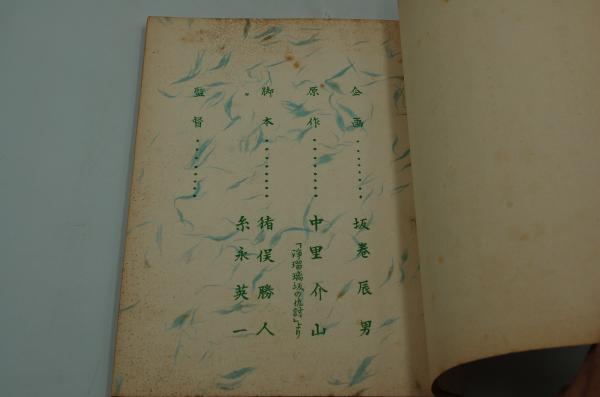 企画・・・・・・・坂巻辰男
原作・・・・・・・中里介山
「浄瑠璃坂の仇討」より
脚本・・・・・・・猪俣勝人
〃 糸永英一
監督・・・・・・・